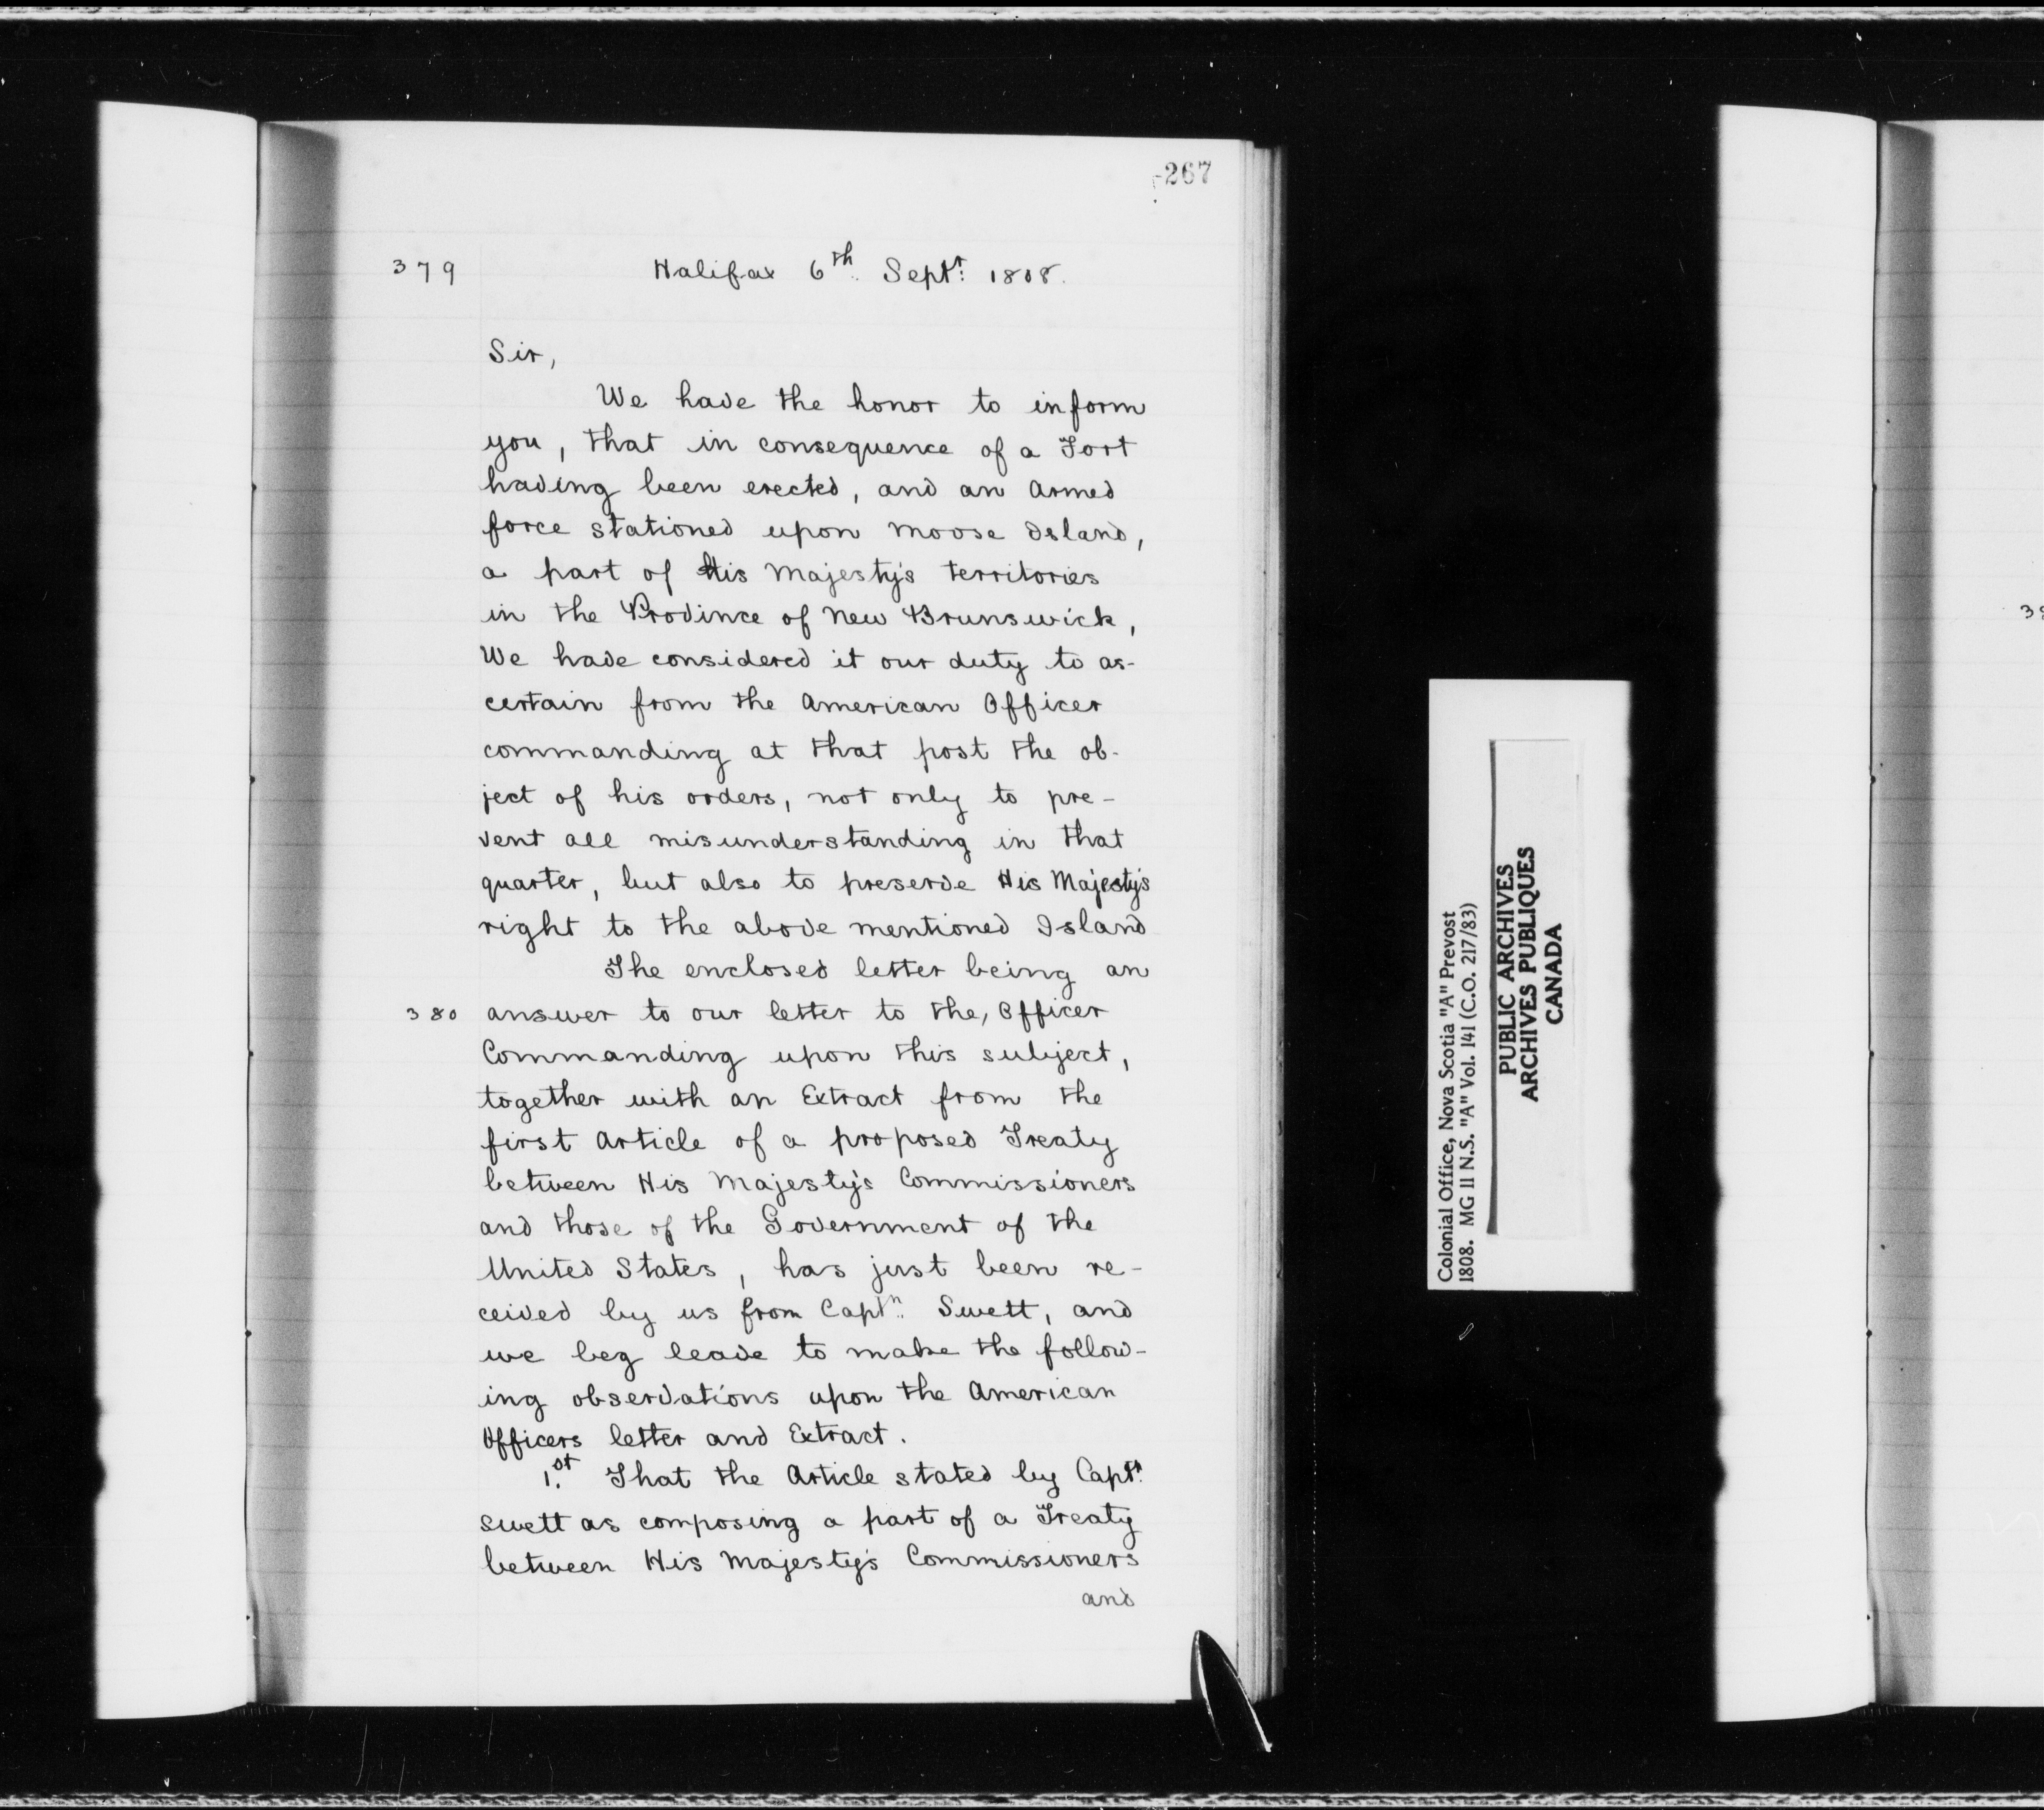 267
379
Halifax 6th Septr: 1808.
Sir,
We have the honor to inform
you, that in consequence of a Fort
having been erected, and an Armed
force stationed upon Moose Island,
a part of His Majesty's territories
in the Province of New Brunswick,
We have considered it our duty to as-
certain from the American Officer
commanding at that post the ob-
ject of his orders, not only to pre-
vent all misunderstanding in that
quarter, but also to preserve His Majesty's
right to the above mentioned Island
The enclosed letter being an
380 answer to our letter to the, Officer
Commanding upon this subject,
together with an Extract from the
first Article of a proposed Treaty
between His Majesty's Commissioners
and those of the Government of the
United States, has just been re-
ceived by us from Captn: Swett, and
we beg leave to make the follow-
ing observations upon the American
Officers letter and Extract.
1.st That the Article stated by Captn:
Swett as composing a part of a Treaty
between His Majesty's Commissioners
and
Colonial Office, Nova Scotia "A" Prevost
1808. MG 11 N.S. "A" Vol. 141 (C.O. 217/83)
PUBLIC ARCHIVES
ARCHIVES PUBLIQUES
CANADA